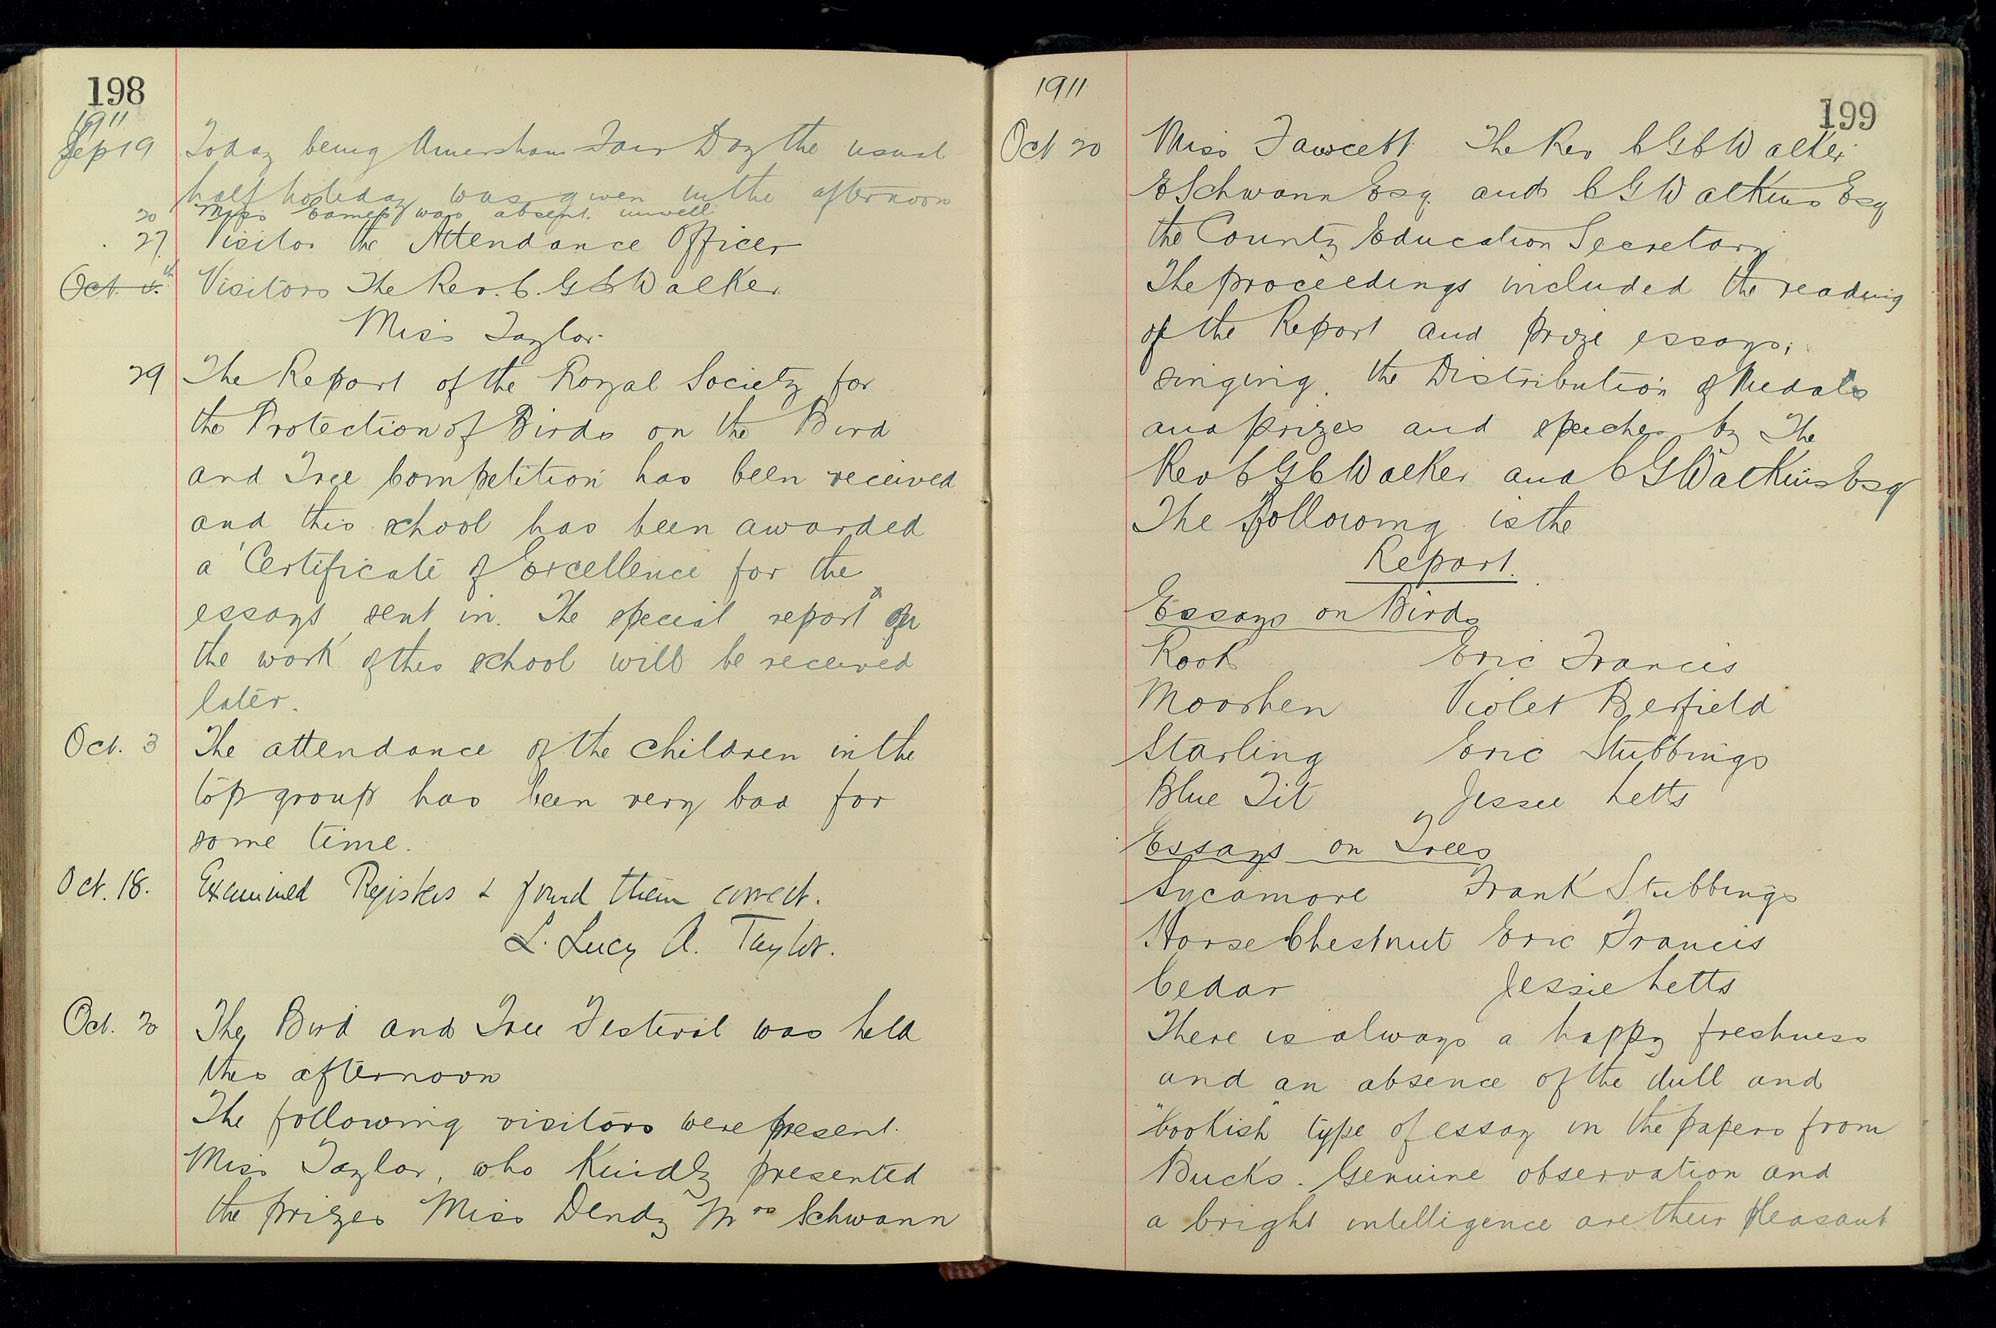 198
1911
Sep 19 Today being Amersham Fair Day the usual
half holiday was given in the afternoon
20 Miss Eames was absent. unwell
27. Visitor the Attendance Officer
Oct. Visitors The Rev. C. G. C Walker
Miss Taylor.
29 The Report of the Royal Society for
the Protection of Birds on the Bird
and Tree Competition has been received
and this school has been awarded
a 'Certificate of Excellence for the
essays sent in. The special report on
the work of this school will be received
later.
Oct. 3 The attendance of the children in the
top group has been very bad for
some time.
Oct. 18. Examined Registers & found them correct.
L. Lucy A. Taylor.
Oct. 20 The Bird and Tree Festival was held
this afternoon
The following visitors were present.
Miss Taylor, who kindly presented
the prizes Miss Dendy Mrs Schwann
1911
199
Oct 20 Miss Fawcett The Rev C G C Walker
E Schwann Esq. and C G Watkins Esq
the County Education Secretary
The proceedings included the reading
of the Report and prize essays;
singing, the Distribution of Medals
and prizes and speeches by The
Rev C G C Walker and C G Watkins Esq
The following is the
Report.
Essays on Birds
Rook Eric Francis
Moorhen Violet Berfield
Starling Eric Stubbings
Blue Tit Jessie Letts
Essays on Trees
Sycamore Frank Stubbings
Horse Chestnut Eric Francis
Cedar Jessie Letts
There is always a happy freshness
and an absence of the dull and
"bookish" type of essay in the papers from
Bucks. Genuine observation and
a bright intelligence are their pleasant